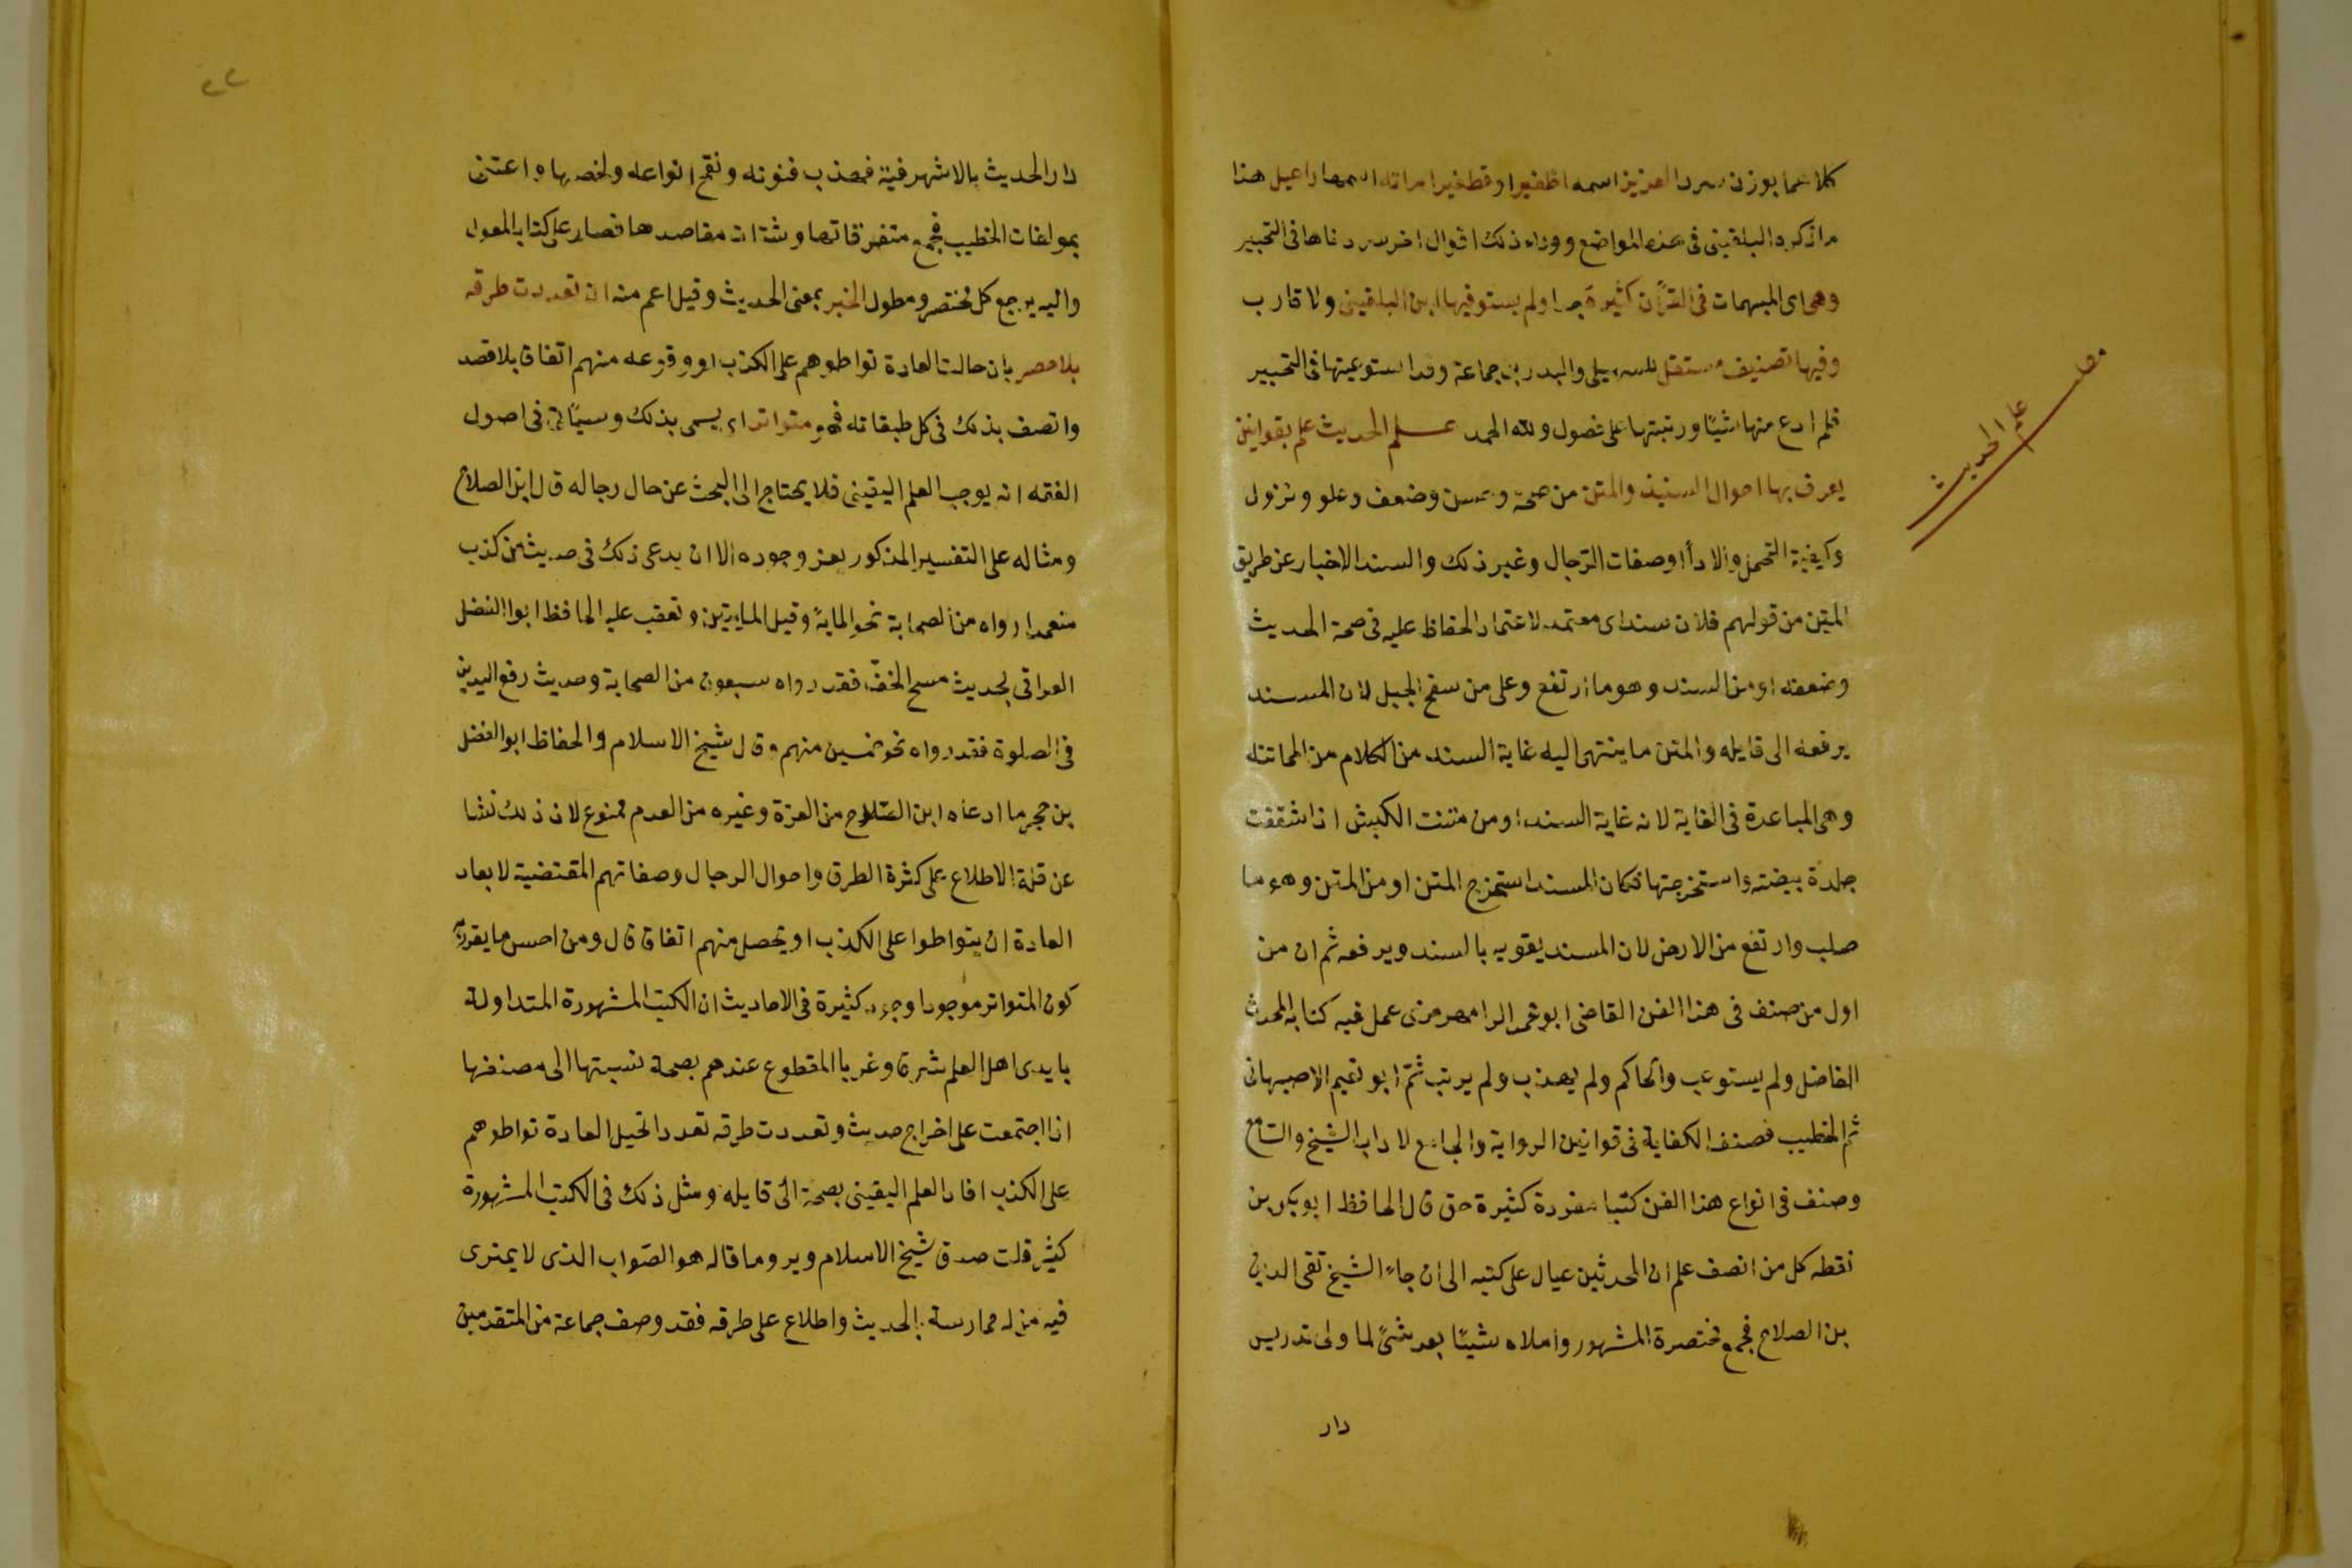 كلاهما بوزن سرد العزيز اسمه اظفير او قطفير امراته اسمها راعيل هذا
ما ذكره البلقينى فى هذه المواضع ووراء ذلك اقوال اخر سردناها فى التحبير
وهى اى المبهمات فى القرآن كثيرة جدا ولم يستوفيها ابن البلقينى ولا قارب
وفيها تصنيف مستقل للسهيلى والبدر بن جماعة وقد استوعبتها فى التحبير
فلم ادع منها شيئا ورتبتها على فصول ولله الحمد علم الحديث علم بقوانين
يعرف بها احوال السند والمتن من صحة وحسن وضعف وعلو ونزول
وكيفية التحمل والاداأ وصفات الرجال وغير ذلك والسند الاخبار عن طريق
المتن من قولهم فلان سند اى معتمد لاعتماد الحفاظ عليه فى صحة الحديث
وضعفه او من السند وهو ما ارتفع وعلى من سفح الجبل لان المسند
يرفعه الى قايله والمتن ما ينتهى اليه غاية السند من الكلام من المماتنه
وهى المباعدة فى الغاية لانه غاية السند او من متنت الكبش اذا شققت
جلدة بيضته واستخرجتها فكان المسند استخرج المتن او من المتن وهو ما
صلب وارتفع من الارض لان المسند يقويه بالسند ويرفعه ثم ان من
اول من صنف فى هذا الفن القاضى ابو محمد الرامهرمزى عمل فيه كتابه المحدث
الفاضل ولم يستوعب والحاكم ولم يهذب ولم يرتب ثمّ ابو نعيم الاصبهانى
ثم الخطيب فصنف الكفاية فى قوانين الرواية والجامع لاداب الشيخ والسامع
وصنف فى انواع هذا الفن كتبا مفردة كثيرة حق قال الحافظ ابو بكر بن
نقطه كل من انصف علم ان المحدثين عيال على كتبه الى ان جاء الشيخ تقى الدين
بن الصلاح فجمع مختصرة المشهور واملاه شيئا بعد شئ لما ولى تدريس
دار
مطلب
علم الحديث
٢٢
دار الحديث بالاشرفية فهذب فنونه ونقح انواعه ولخصها واعتنى
بمولفات الخطيب فجمع متفرقاتها وشتات مقاصدها فصار على كتابه المعول
واليه يرجع كل مختصر ومطول الخبر بمعنى الحديث وقيل اعم منه ان تعددت طرقه
بلا حصر بان حالت العادة تواطوهم على الكذب او وقوعه منهم اتفاق بلا قصد
واتصف بذلك فى كل طبقاته فهو متواتر اى يسمى بذلك وسيأتى فى اصول
الفقه انه يوجب العلم اليقينى فلا يحتاج الى البحث عن حال رجاله قال ابن الصلاح
ومثاله على التفسير المذكور يعز وجوده الا ان يدعى ذلك فى حديث من كذب
متعمدا رواه من الصحابة نحو الماية وقيل المايتين وتعقب عليه الحافظ ابوا الفضل
العراقى بحديث مسح الخف فقد رواه سبعون من الصحابة وحديث رفع اليدين
فى الصلوة فقد رواه نحو خمسين منهم وقال شيخ الاسلام والحفاظ ابوا الفضل
بن حجر ما ادعاه ابن الصّلاح من العزة وغيره من العدم ممنوع لان ذلك نشا
عن قلة الاطلاع على كثرة الطرق واحوال الرجال وصفاتهم المقتضية لابعاد
العادة ان يتواطوا على الكذب او يحصل منهم اتفاق قال ومن احسن ما يقرر به
كون المتواتر موجودا وجود كثيرة فى الاحاديث ان الكتب المشهورة المتداولة
بايدى اهل العلم شرقا وغربا المقطوع عندهم بصحة نسبتها الى مصنفها
اذا اجتمعت على اخراج حديث وتعددت طرقه تعددا تحيل العادة تواطوهم
على الكذب افاد العلم اليقينى بصحة الى قايله ومثل ذلك فى الكتب المشهورة
كثير قلت صدق شيخ الاسلام وبر وما قاله هو الصّواب الذى لا يمترى
فيه من له ممارسة بالحديث واطلاع على طرقه فقد وصف جماعة من المتقدمين